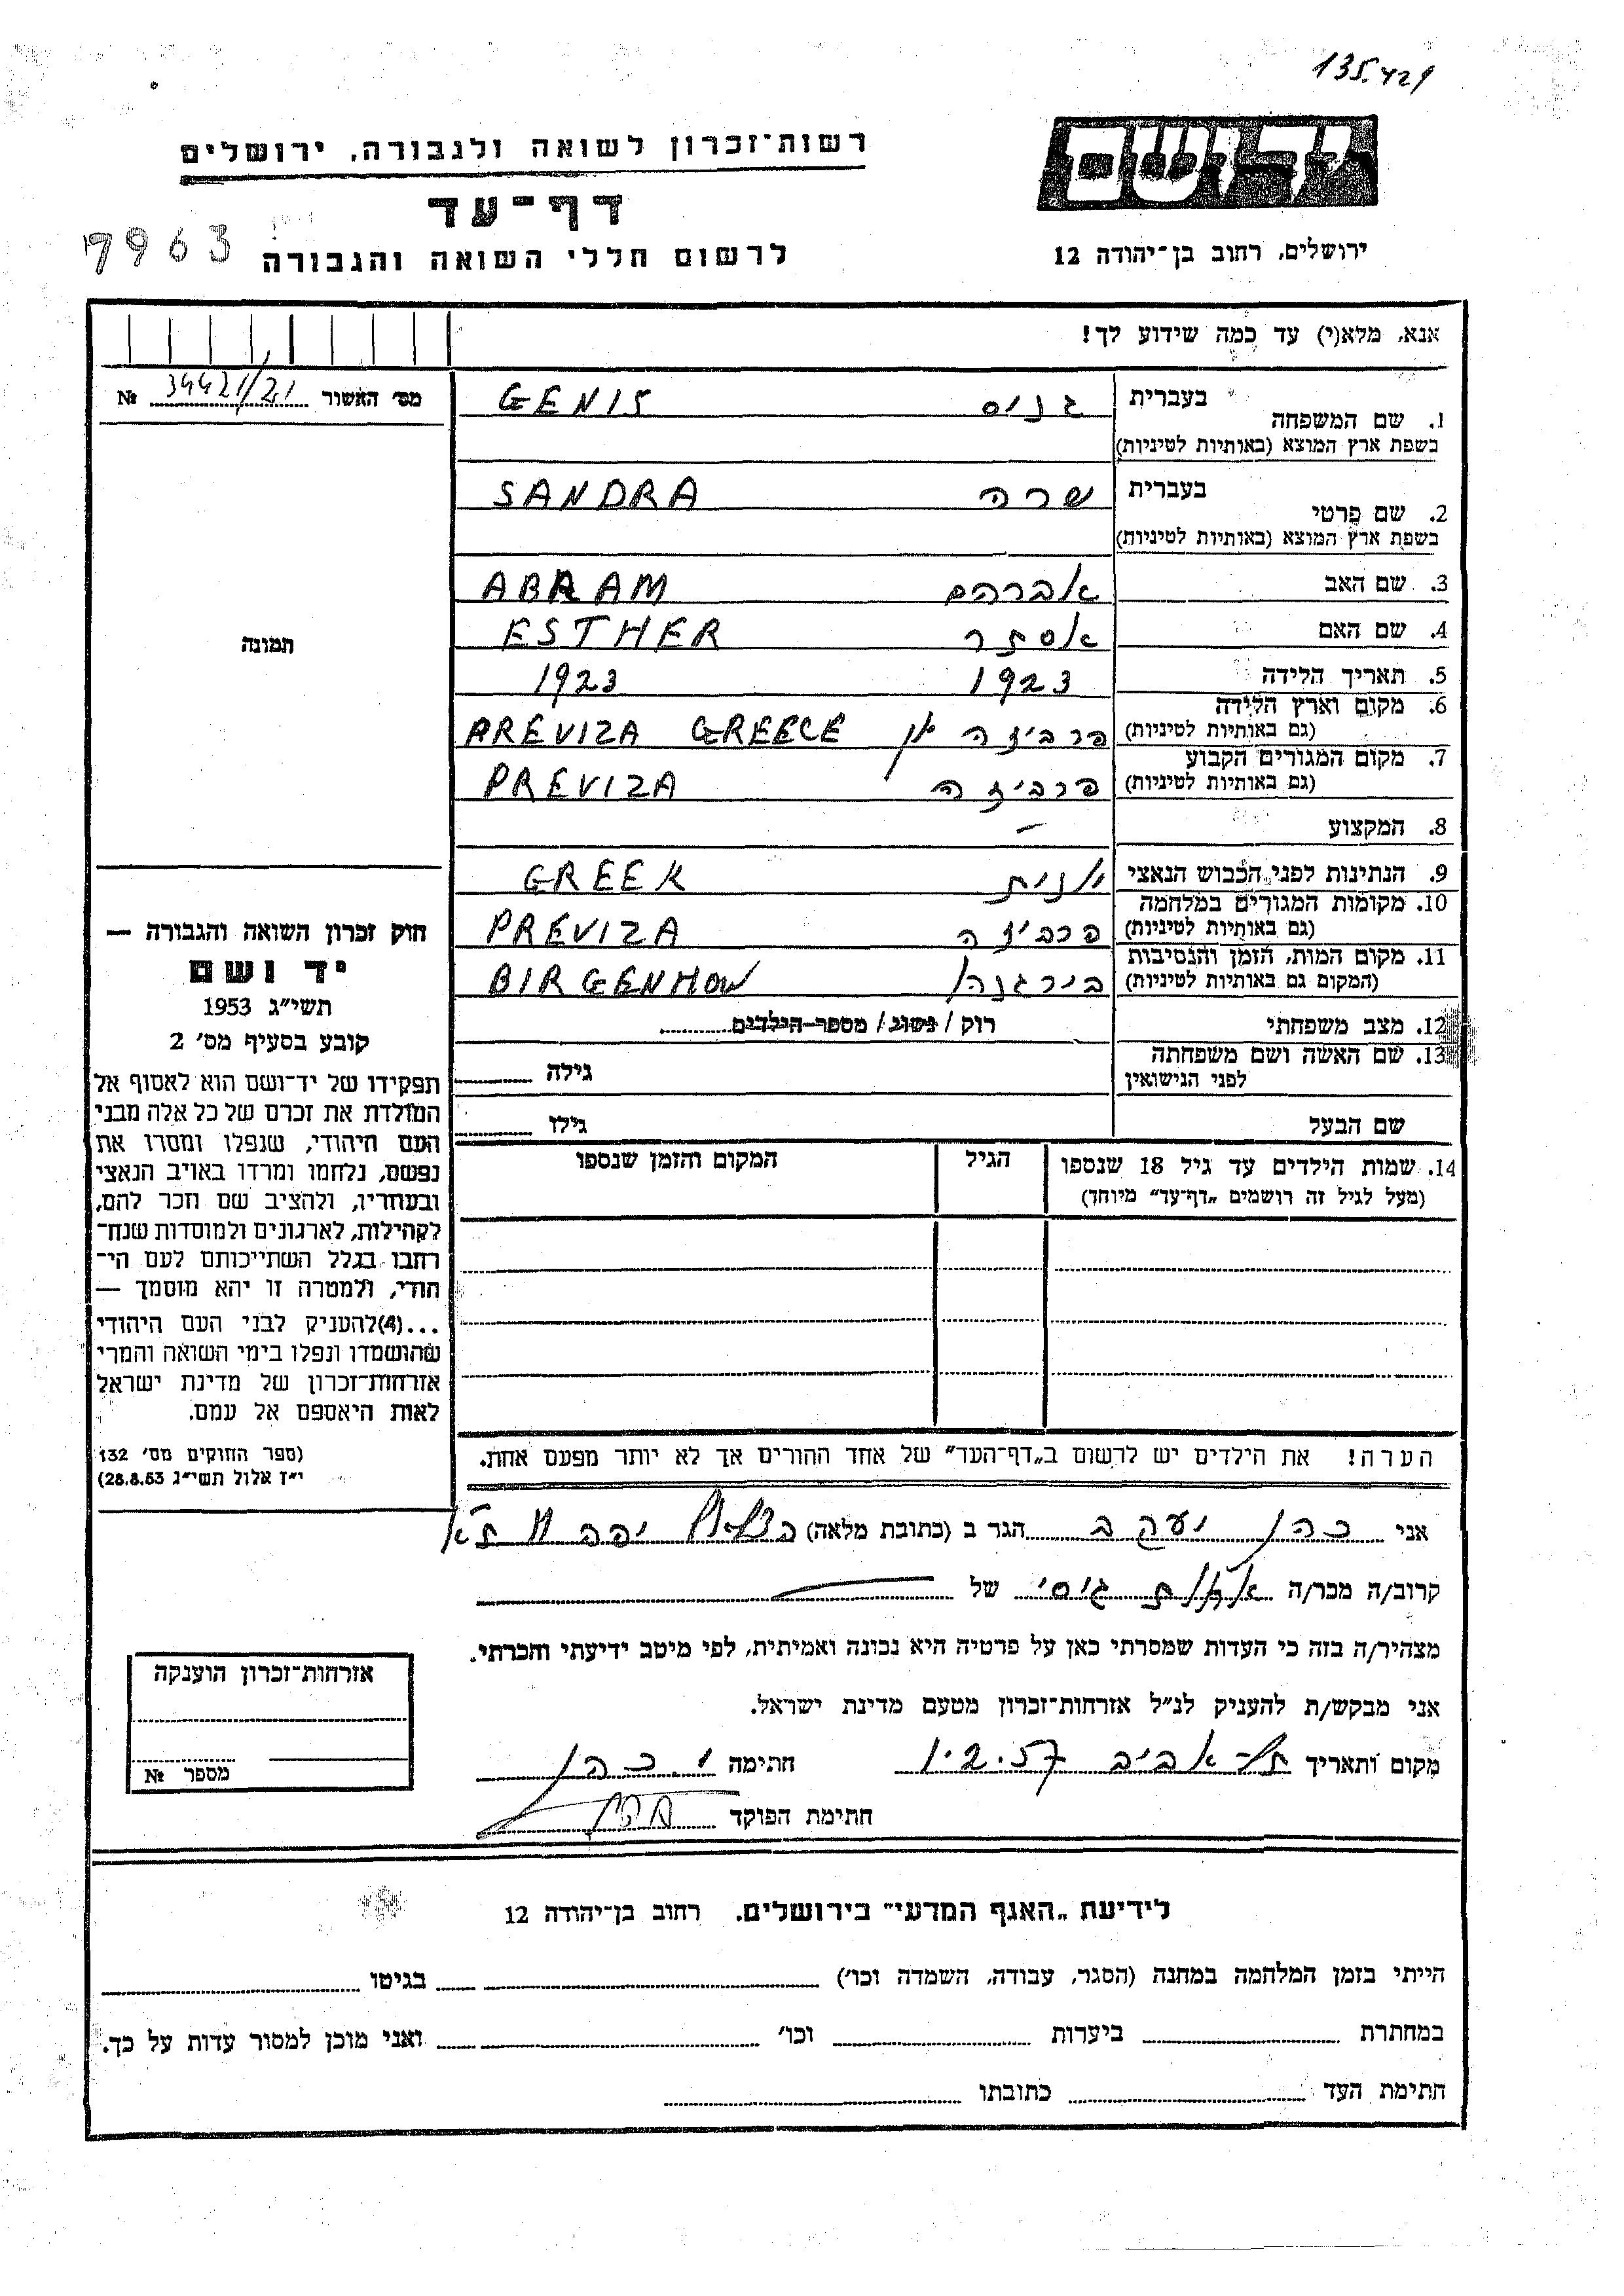 135.421
יד ושם
רשות־זכרון לשואה ולגבורה, ירושלים
דף־עד
לרשום חללי השואה והגבורה
7963
ירושלים, רחוב בן־יהודה 12
אנא, מלא(י) עד כמה שידוע לך!
מס׳ האשור № 39421/21
1. שם המשפחה בעברית גניס GENIS
בשפת ארץ המוצא (באותיות לטיניות)
2. שם פרטי בעברית שרה SANDRA
בשפת ארץ המוצא (באותיות לטיניות)
3. שם האב אברהם ABRAM
4. שם האם אסתר ESTHER
5. תאריך הלידה 1923 1923
6. מקום וארץ הלידה (גם באותיות לטיניות) פרביזה יון PREVIZA GREECE
7. מקום המגורים הקבוע (גם באותיות לטיניות) פרביזה PREVIZA
8. המקצוע —
9. הנתינות לפני הכבוש הנאצי יונית GREEK
10. מקומות המגורים במלחמה (גם באותיות לטיניות) פרביזה PREVIZA
11. מקום המות, הזמן והנסיבות (המקום גם באותיות לטיניות) בירגנהו BIRGENHOW
12. מצב משפחתי רוק / נשוי / מספר הילדים
13. שם האשה ושם משפחתה לפני הנישואין גילה
שם הבעל גילו
14. שמות הילדים עד גיל 18 שנספו הגיל המקום והזמן שנספו
(מעל לגיל זה רושמים „דף־עד” מיוחד)
הערה! את הילדים יש לרשום ב„דף־העד” של אחד ההורים אך לא יותר מפעם אחת.
תמונה
חוק זכרון השואה והגבורה —
יד ושם
תשי״ג 1953
קובע בסעיף מס׳ 2
תפקידו של יד־ושם הוא לאסוף אל
המולדת את זכרם של כל אלה מבני
העם היהודי, שנפלו ומסרו את
נפשם, נלחמו ומרדו באויב הנאצי
ובעוזריו, ולהציב שם וזכר להם,
לקהילות, לארגונים ולמוסדות שנח־
רחבו בגלל השתייכותם לעם הי־
הודי, ולמטרה זו יהא מוסמך —
...(4)להעניק לבני העם היהודי
שהושמדו ונפלו בימי השואה והמרי
אזרחות־זכרון של מדינת ישראל
לאות היאספם אל עמם.
(ספר החוקים מס׳ 132
י״ז אלול תשי״ג 28.8.53)
אני כהן יעקב הגר ב (כתובת מלאה) יפה ת״א
קרוב/ה מכר/ה גיסי של
מצהיר/ה בזה כי העדות שמסרתי כאן על פרטיה היא נכונה ואמיתית, לפי מיטב ידיעתי והכרתי.
אני מבקש/ת להעניק לנ״ל אזרחות־זכרון מטעם מדינת ישראל.
מקום ותאריך תל־אביב 1.2.57 חתימה י. כהן
חתימת הפוקד
אזרחות־זכרון הוענקה
מספר №
לידיעת „האגף המדעי” בירושלים. רחוב בן־יהודה 12
הייתי בזמן המלחמה במחנה (הסגר, עבודה, השמדה וכו׳) בגיטו
במחתרת ביערות וכו׳ ואני מוכן למסור עדות על כך.
חתימת העד כתובתו